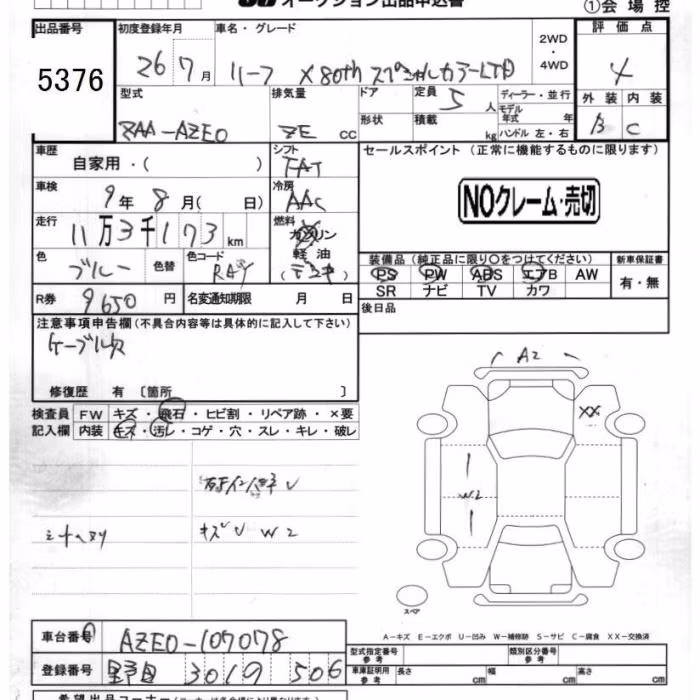 オークション出品申込書 ①会場控
出品番号 初度登録年月 車名・グレード 2WD・4WD 評価点
5376 26 7月 リーフ X 80th スペシャルカラーLTD 4
型式 排気量 ドア 定員 5人 ディーラー・並行 外装 内装
ZAA-AZE0 ZE cc 形状 積載 kg モデル年式 年 ハンドル 左・右 B C
車歴 自家用・( ) シフト FAT セールスポイント (正常に機能するものに限ります)
車検 9年 8月( 日) 冷房 AAC NOクレーム・売切
走行 11万3千173km 燃料 ガソリン
軽油
色 ブルー 色替 色コード RAY (デンキ) 装備品 (純正品に限り○をつけてください) 新車保証書
PS PW ABS エアB AW 有・無
SR ナビ TV カワ
R券 9650円 名変通知期限 月 日 後日品
注意事項申告欄 (不具合内容等は具体的に記入して下さい)
ケーブル欠
修復歴 有 〔箇所 〕
A2
検査員 FW キズ・飛石・ヒビ割・リペア跡・×要
記入欄 内装 キズ・汚レ・コゲ・穴・スレ・キレ・破レ
XX
W2
シートヘタリ キズU W2
スペア
A-キズ E-エクボ U-凹み W-補修跡 S-サビ C-腐食 XX-交換済
車台番号 AZE0-107078 型式指定番号 参考 類別区分番号 参考
登録番号 301 506 車庫証明用 参考 長さ cm 幅 cm 高さ cm